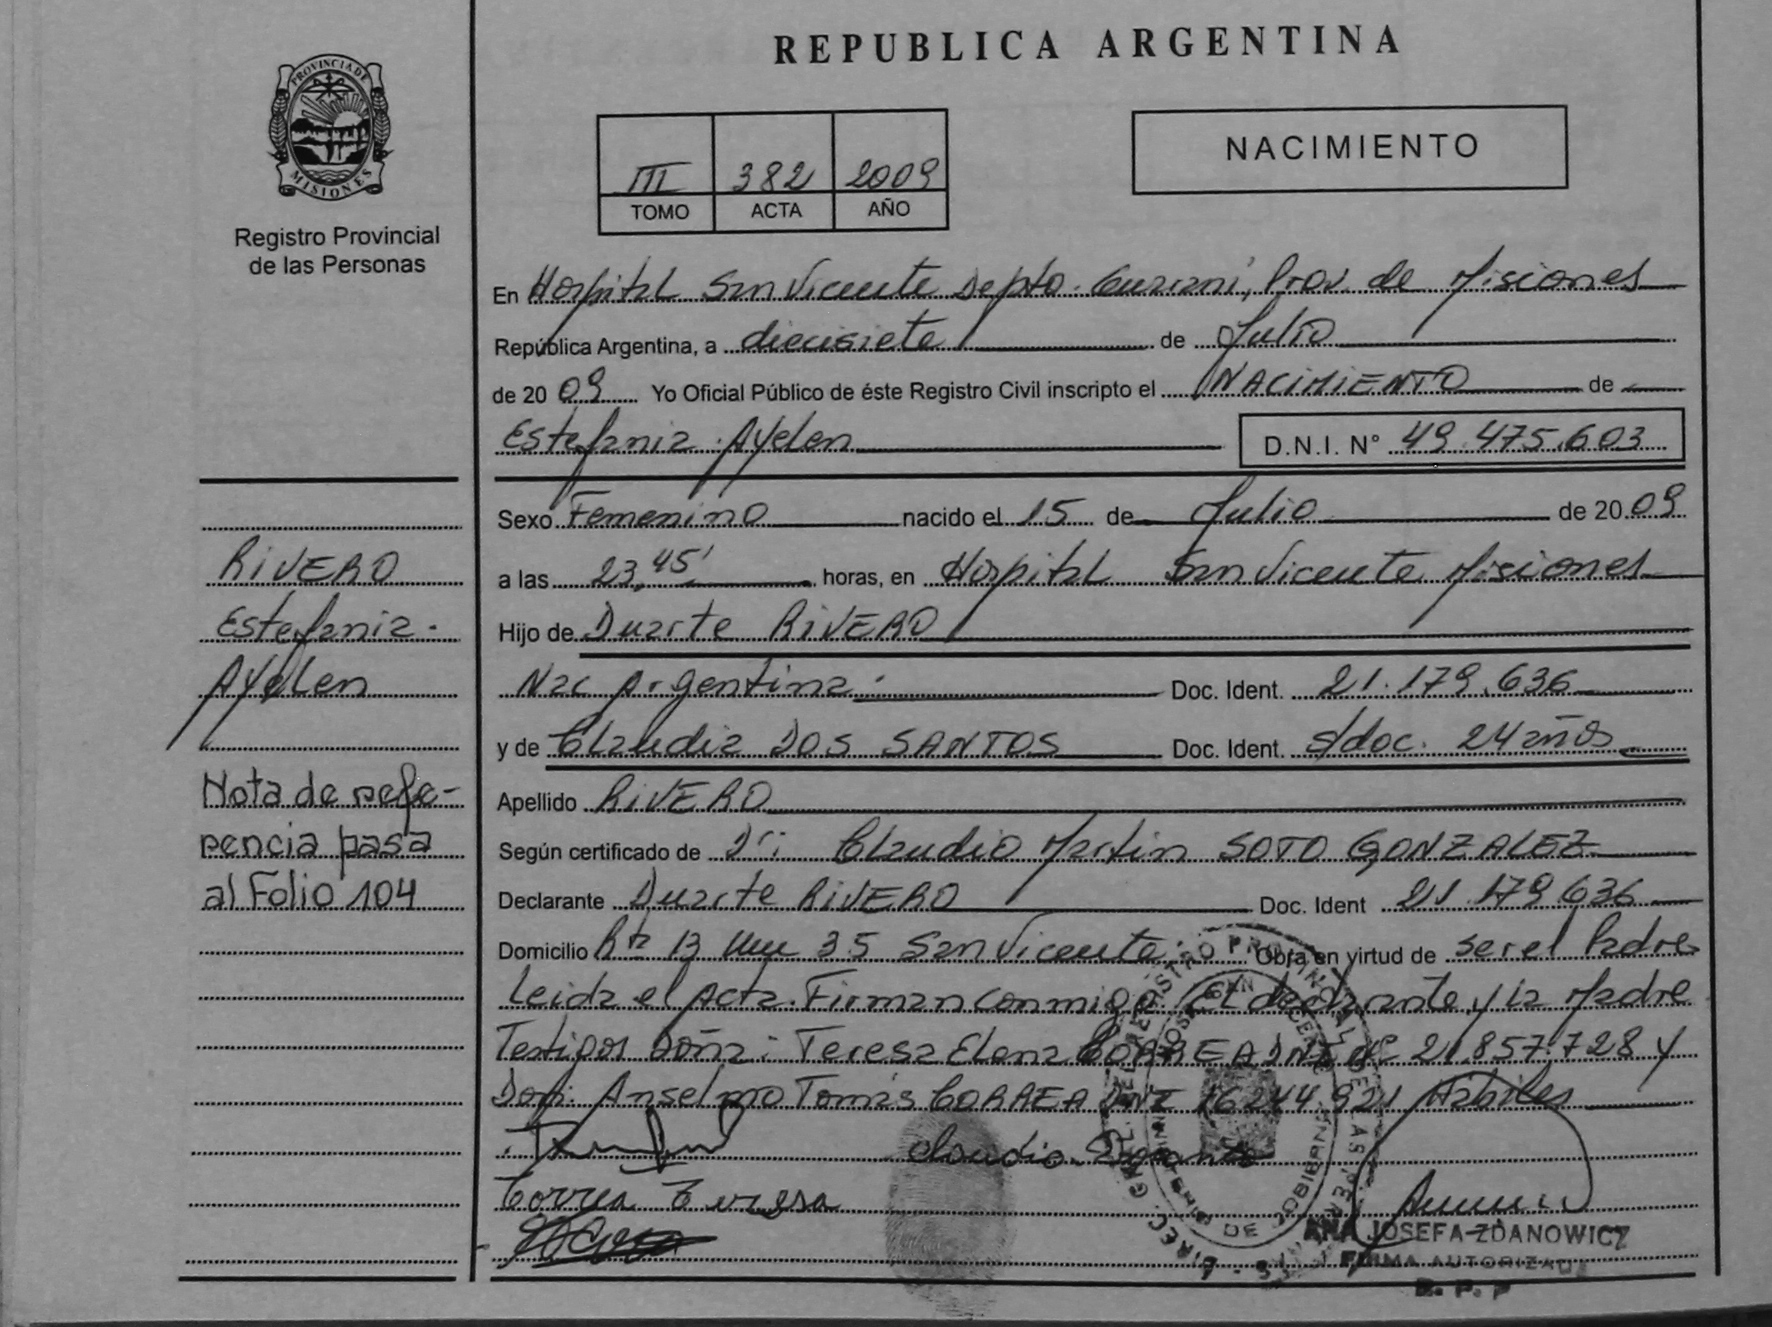 REPUBLICA ARGENTINA
PROVINCIA DE
MISIONES
Registro Provincial
de las Personas
III 382 2009
TOMO ACTA AÑO
NACIMIENTO
En Hospital San Vicente Depto. Guaraní, Prov. de Misiones
República Argentina, a diecisiete de Julio
de 2009 Yo Oficial Público de éste Registro Civil inscripto el NACIMIENTO de
Estefania Ayelen D.N.I. N° 49.475.603
Sexo Femenino nacido el 15 de Julio de 2009
a las 23,45' horas, en Hospital San Vicente Misiones
Hijo de Duarte RIVERO
Nac Argentina Doc. Ident. 21.179.636
y de Claudia DOS SANTOS Doc. Ident. s/doc. 24 años
Apellido RIVERO
Según certificado de Dr: Claudio Martin SOTO GONZALEZ
Declarante Duarte RIVERO Doc. Ident 21.179.636
Domicilio Rta 13 Km 35 San Vicente. Obra en virtud de ser el Padre
Leida el Acta. Firman conmigo El declarante y la Madre
Testigos Doña: Teresa Elena CORREA DNI Nº 21.857.728 y
Don: Anselmo Tomás CORREA DNI 16244.921 Habiles
Correa Teresa
ANA JOSEFA ZDANOWICZ
FIRMA AUTORIZADA
R. P. P
RIVERO
Estefania
Ayelen
Nota de refe-
rencia pasa
al Folio 104